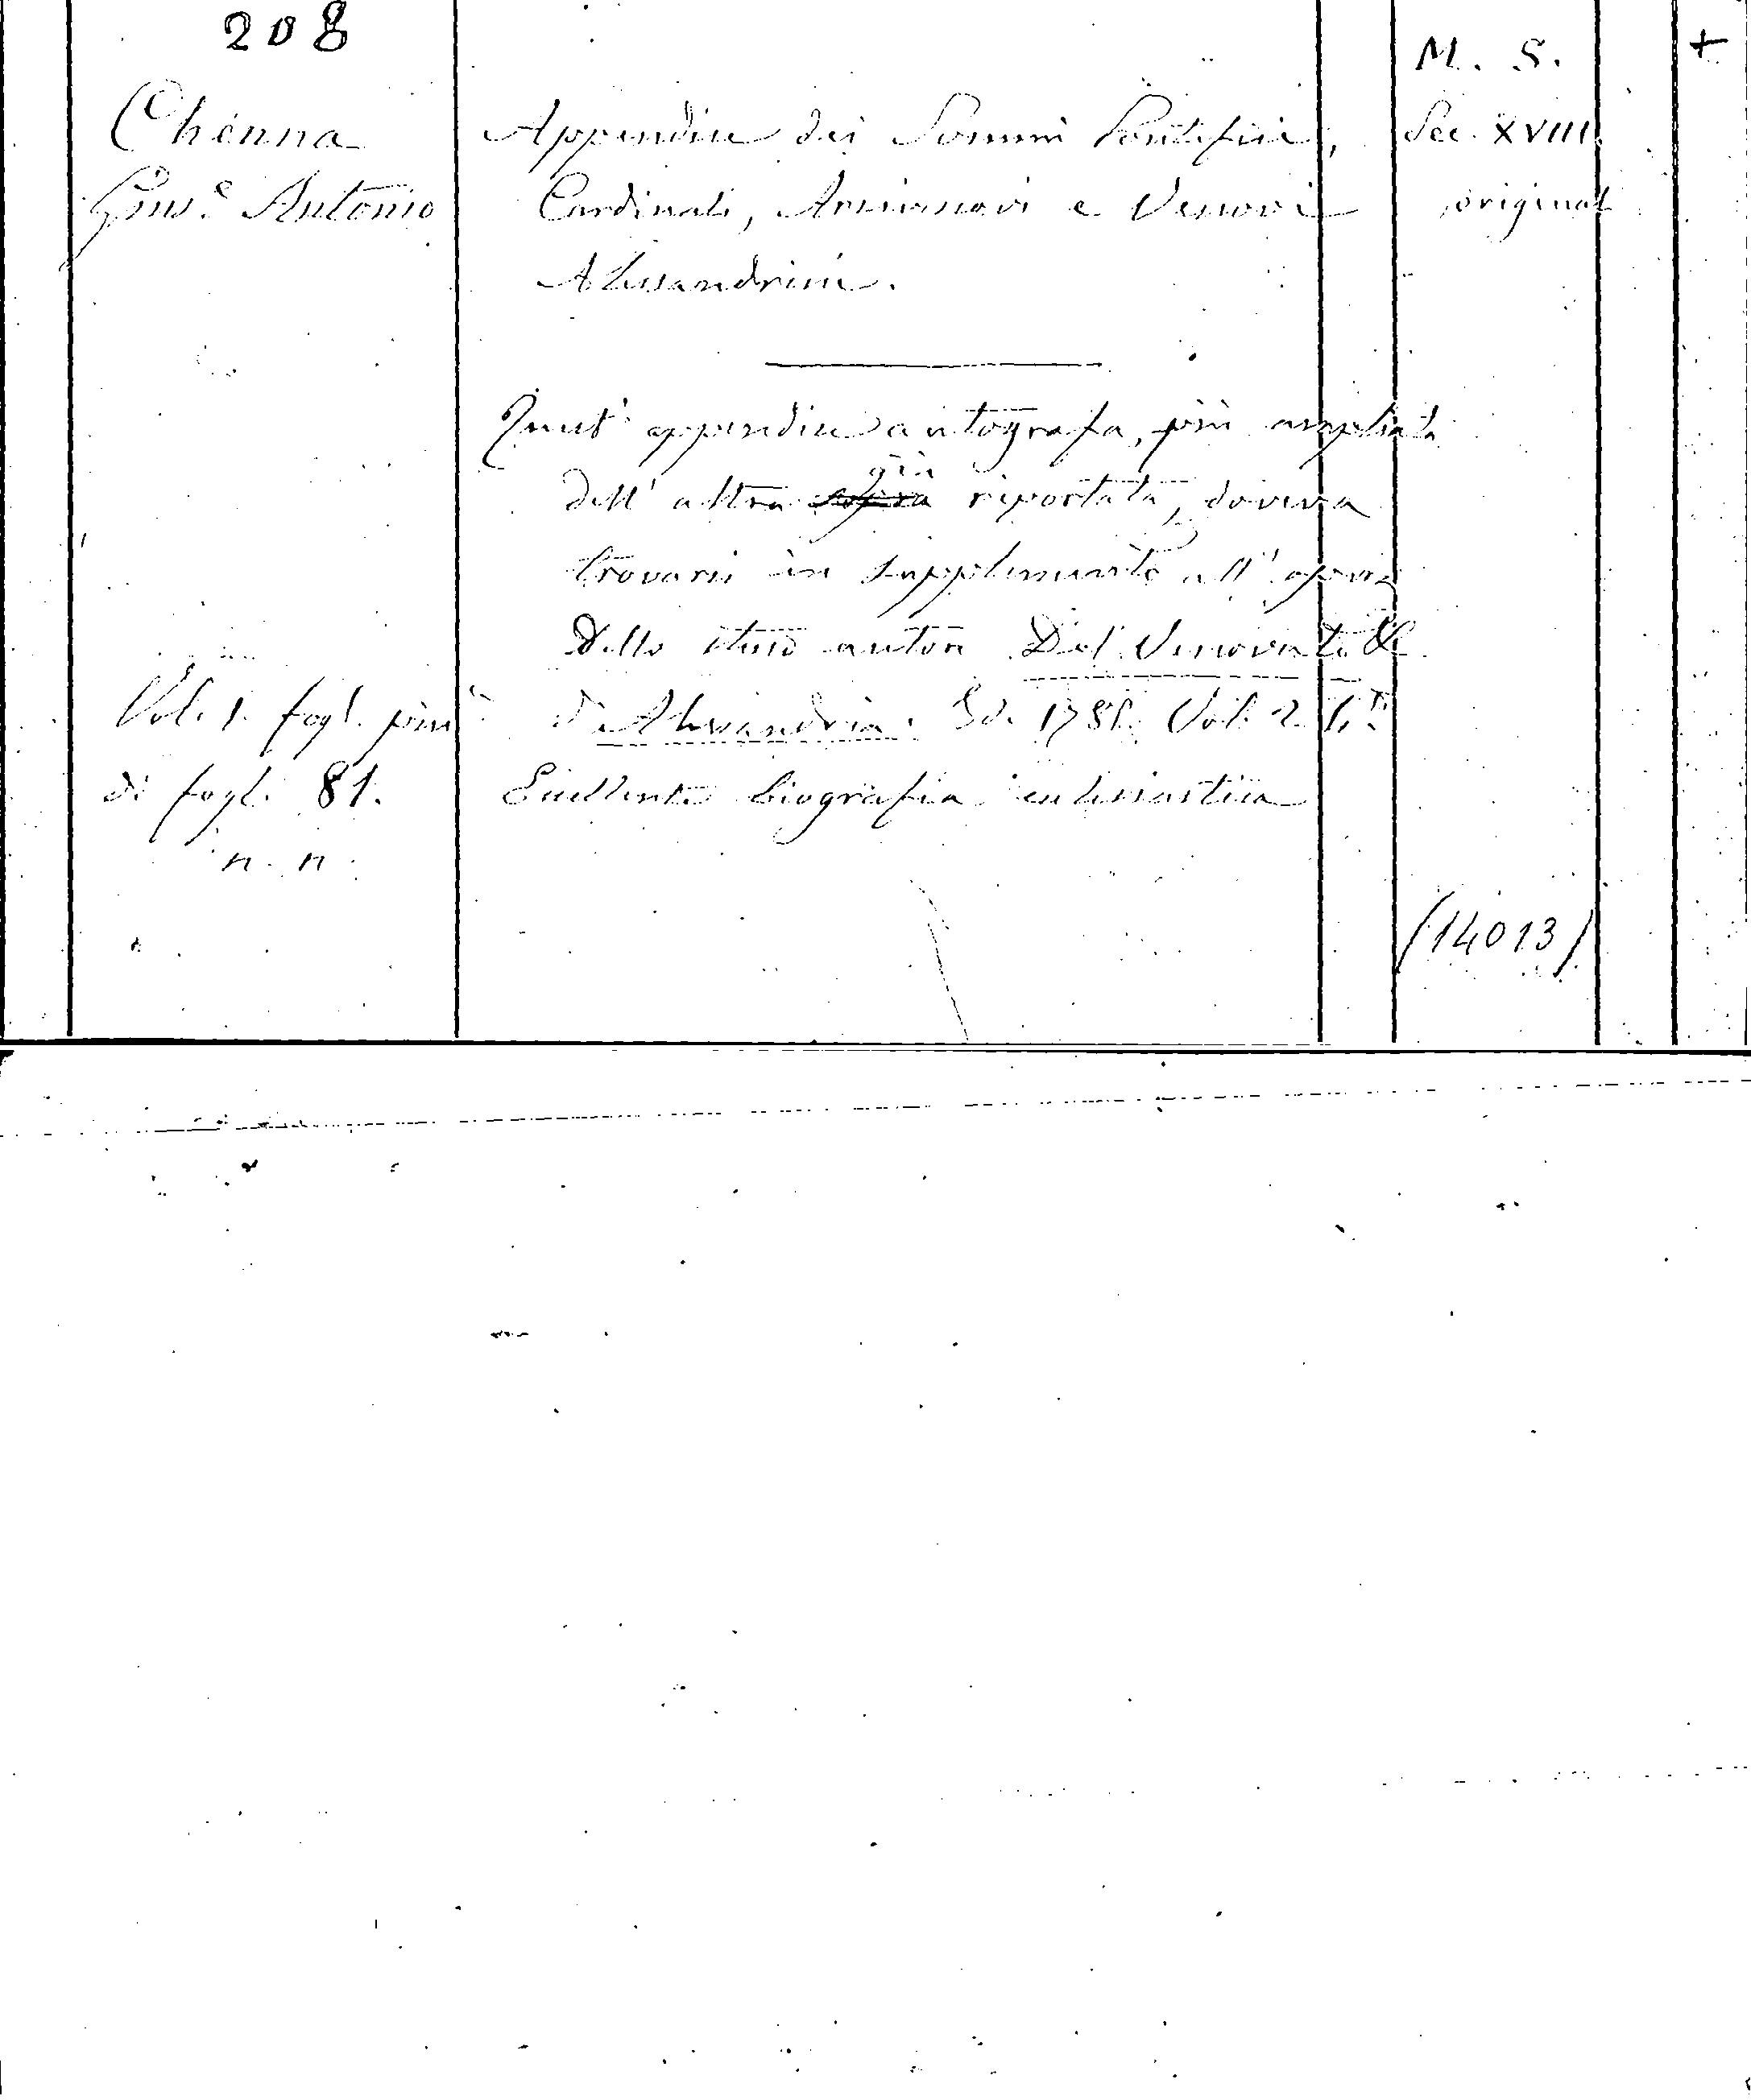 208
M. S.
+
Chenna
Gius.e Antonio
Appendice dei Sommi Pontefici,
Cardinali, Arcivescovi e Vescovi
Alessandrini.
Sec. XVIII.
original
Quest' appendice autografa, più ampliata
dell' altra già riportata, doveva
trovarsi in supplimento all' opera
dello stesso autore Del Vescovato &c.
d'Alessandria. Ed. 1785. Vol. 2.
Eccellente biografia ecclesiastica
Vol. 1. fogl. picc
di fogli 81.
n. n.
(14013)